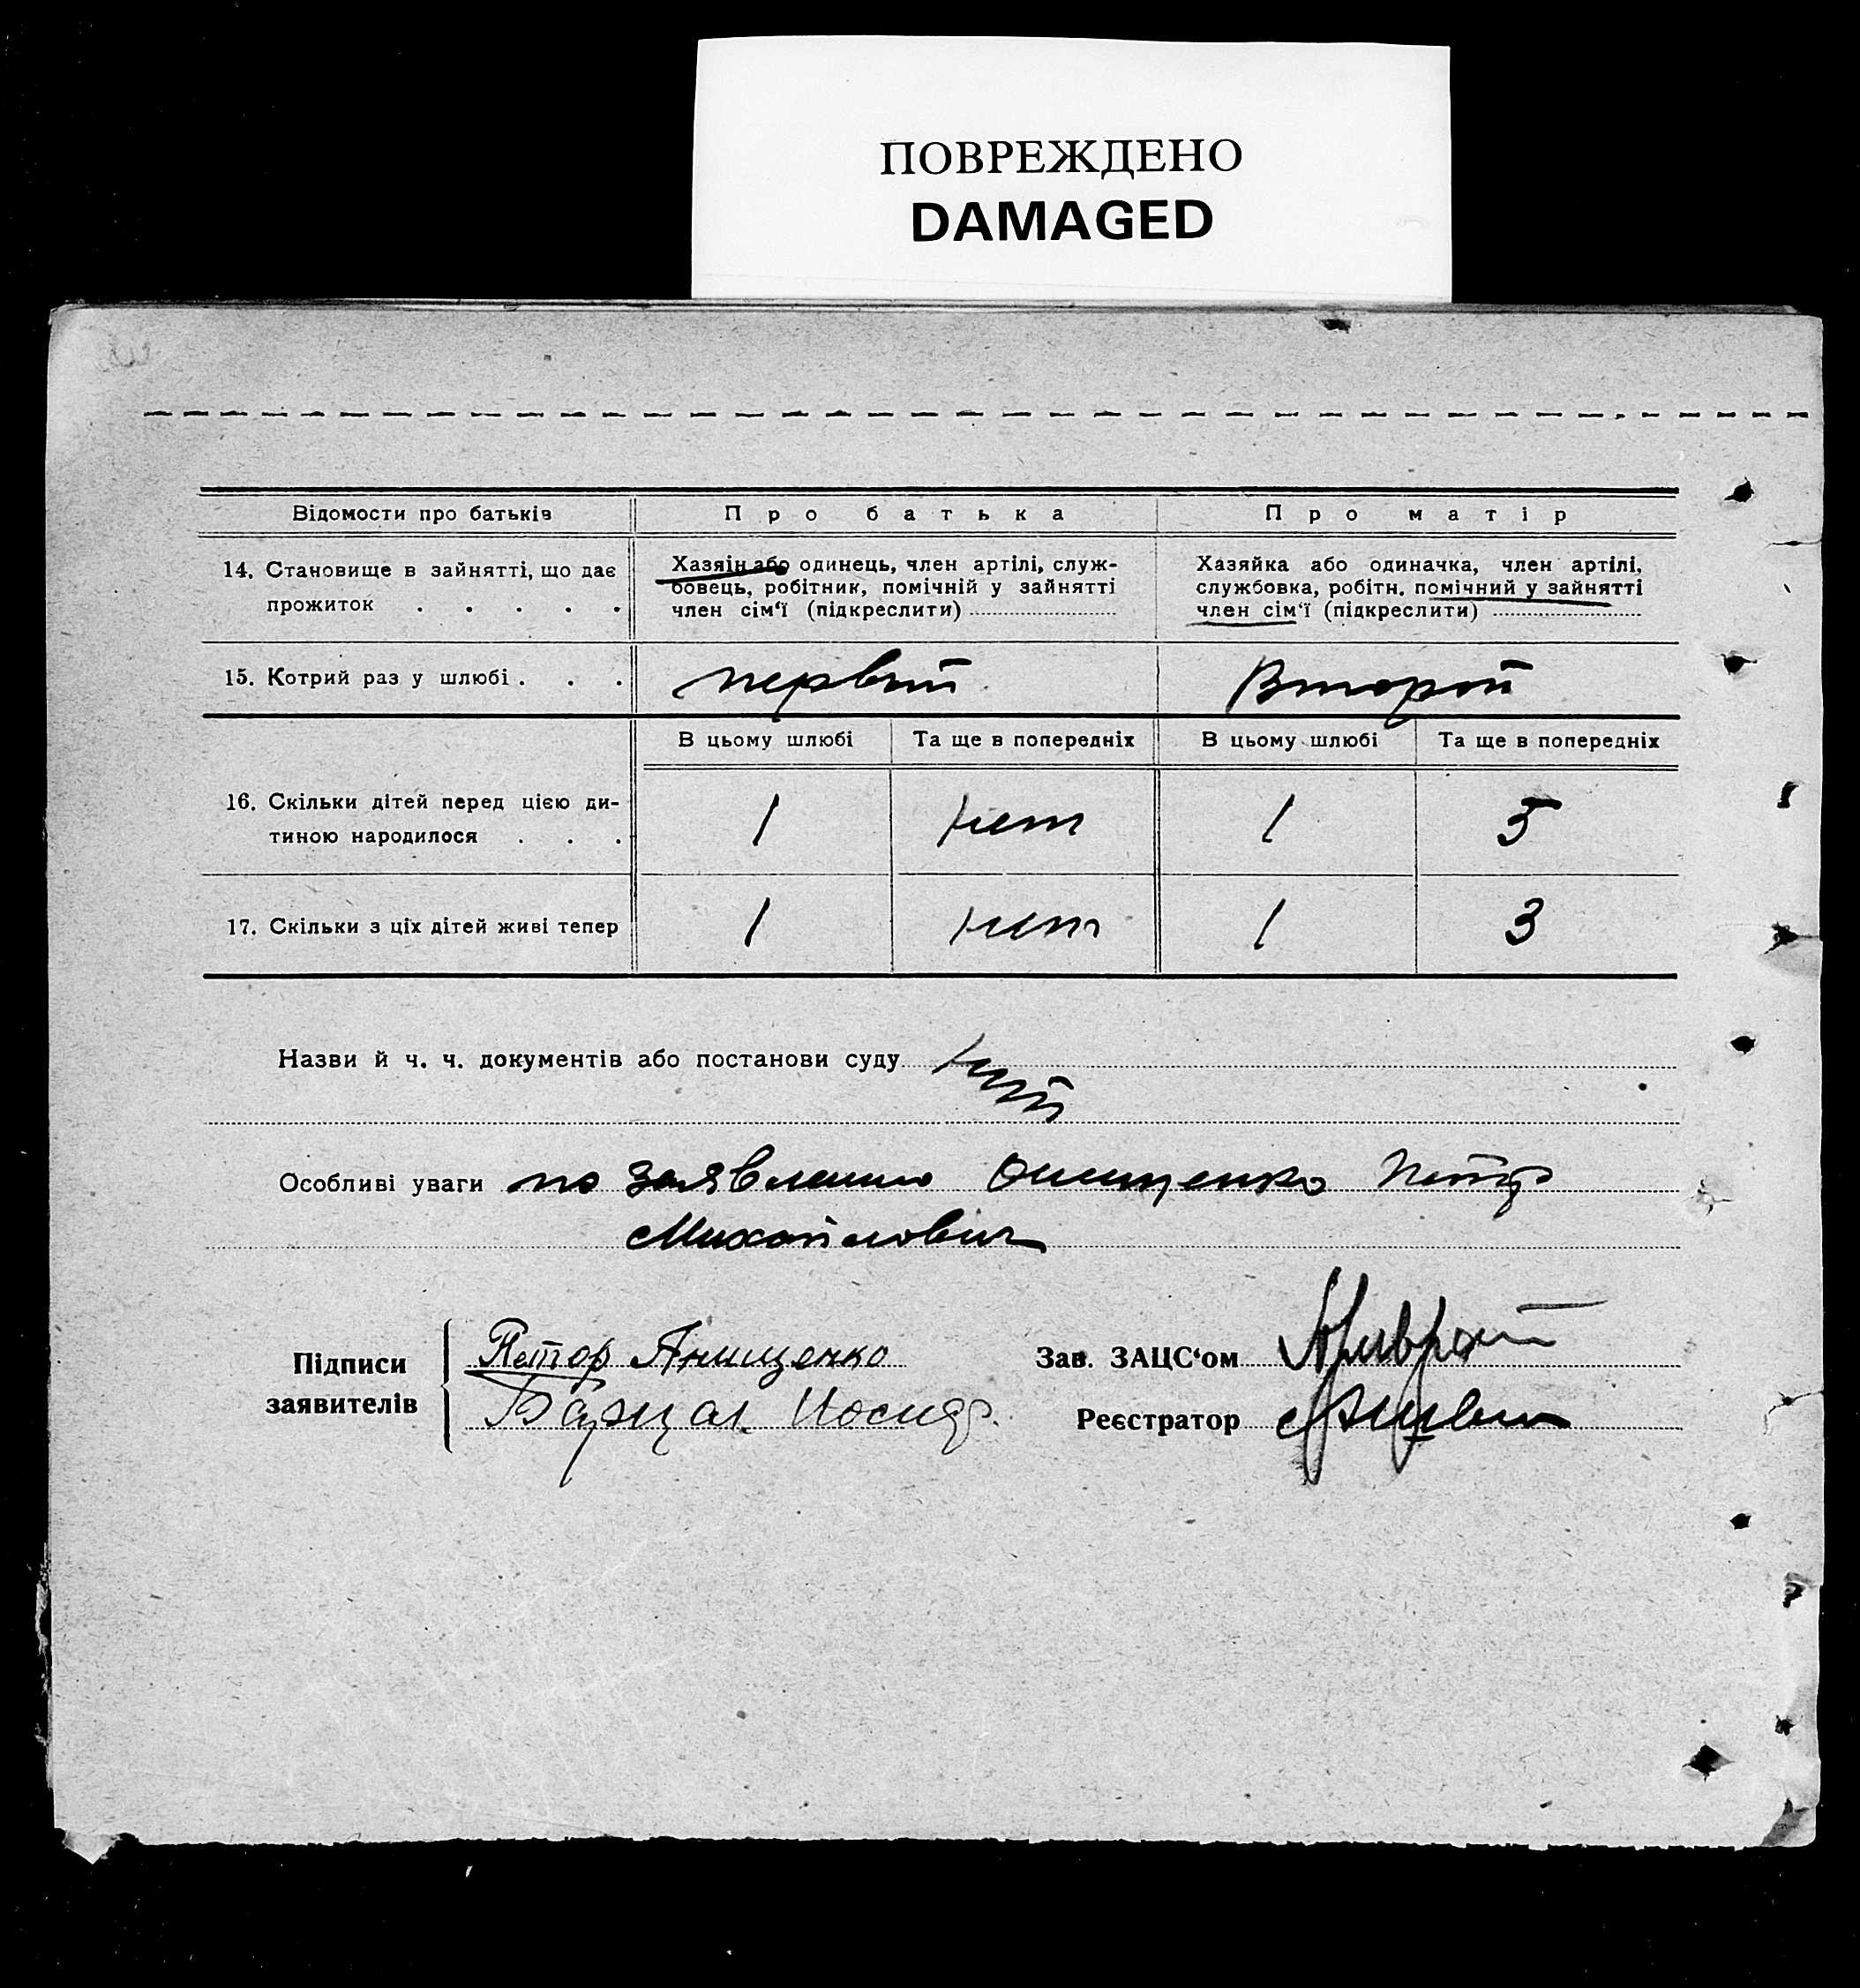 ПОВРЕЖДЕНО
DAMAGED
Відомости про батьків
Про батька
Про матір
14. Становище в зайнятті, що дає
прожиток . . . . .
Хазяїн або одинець, член артілі, служ-
бовець, робітник, помічній у зайнятті
член сім'ї (підкреслити)
Хазяйка або одиначка, член артілі,
службовка, робітн. помічний у зайнятті
член сім'ї (підкреслити)
15. Котрий раз у шлюбі . . .
первый
Второй
В цьому шлюбі
Та ще в попередніх
В цьому шлюбі
Та ще в попередніх
16. Скільки дітей перед цією ди-
тиною народилося . . .
1
нет
1
5
17. Скільки з ціх дітей живі тепер
1
нет
1
3
Назви й ч. ч. документів або постанови суду нет
Особливі уваги по заявлению Онищенко Петр
Михайлович
Підписи
заявителів
Петор Анищенко
Зав. ЗАЦС'ом
Реєстратор